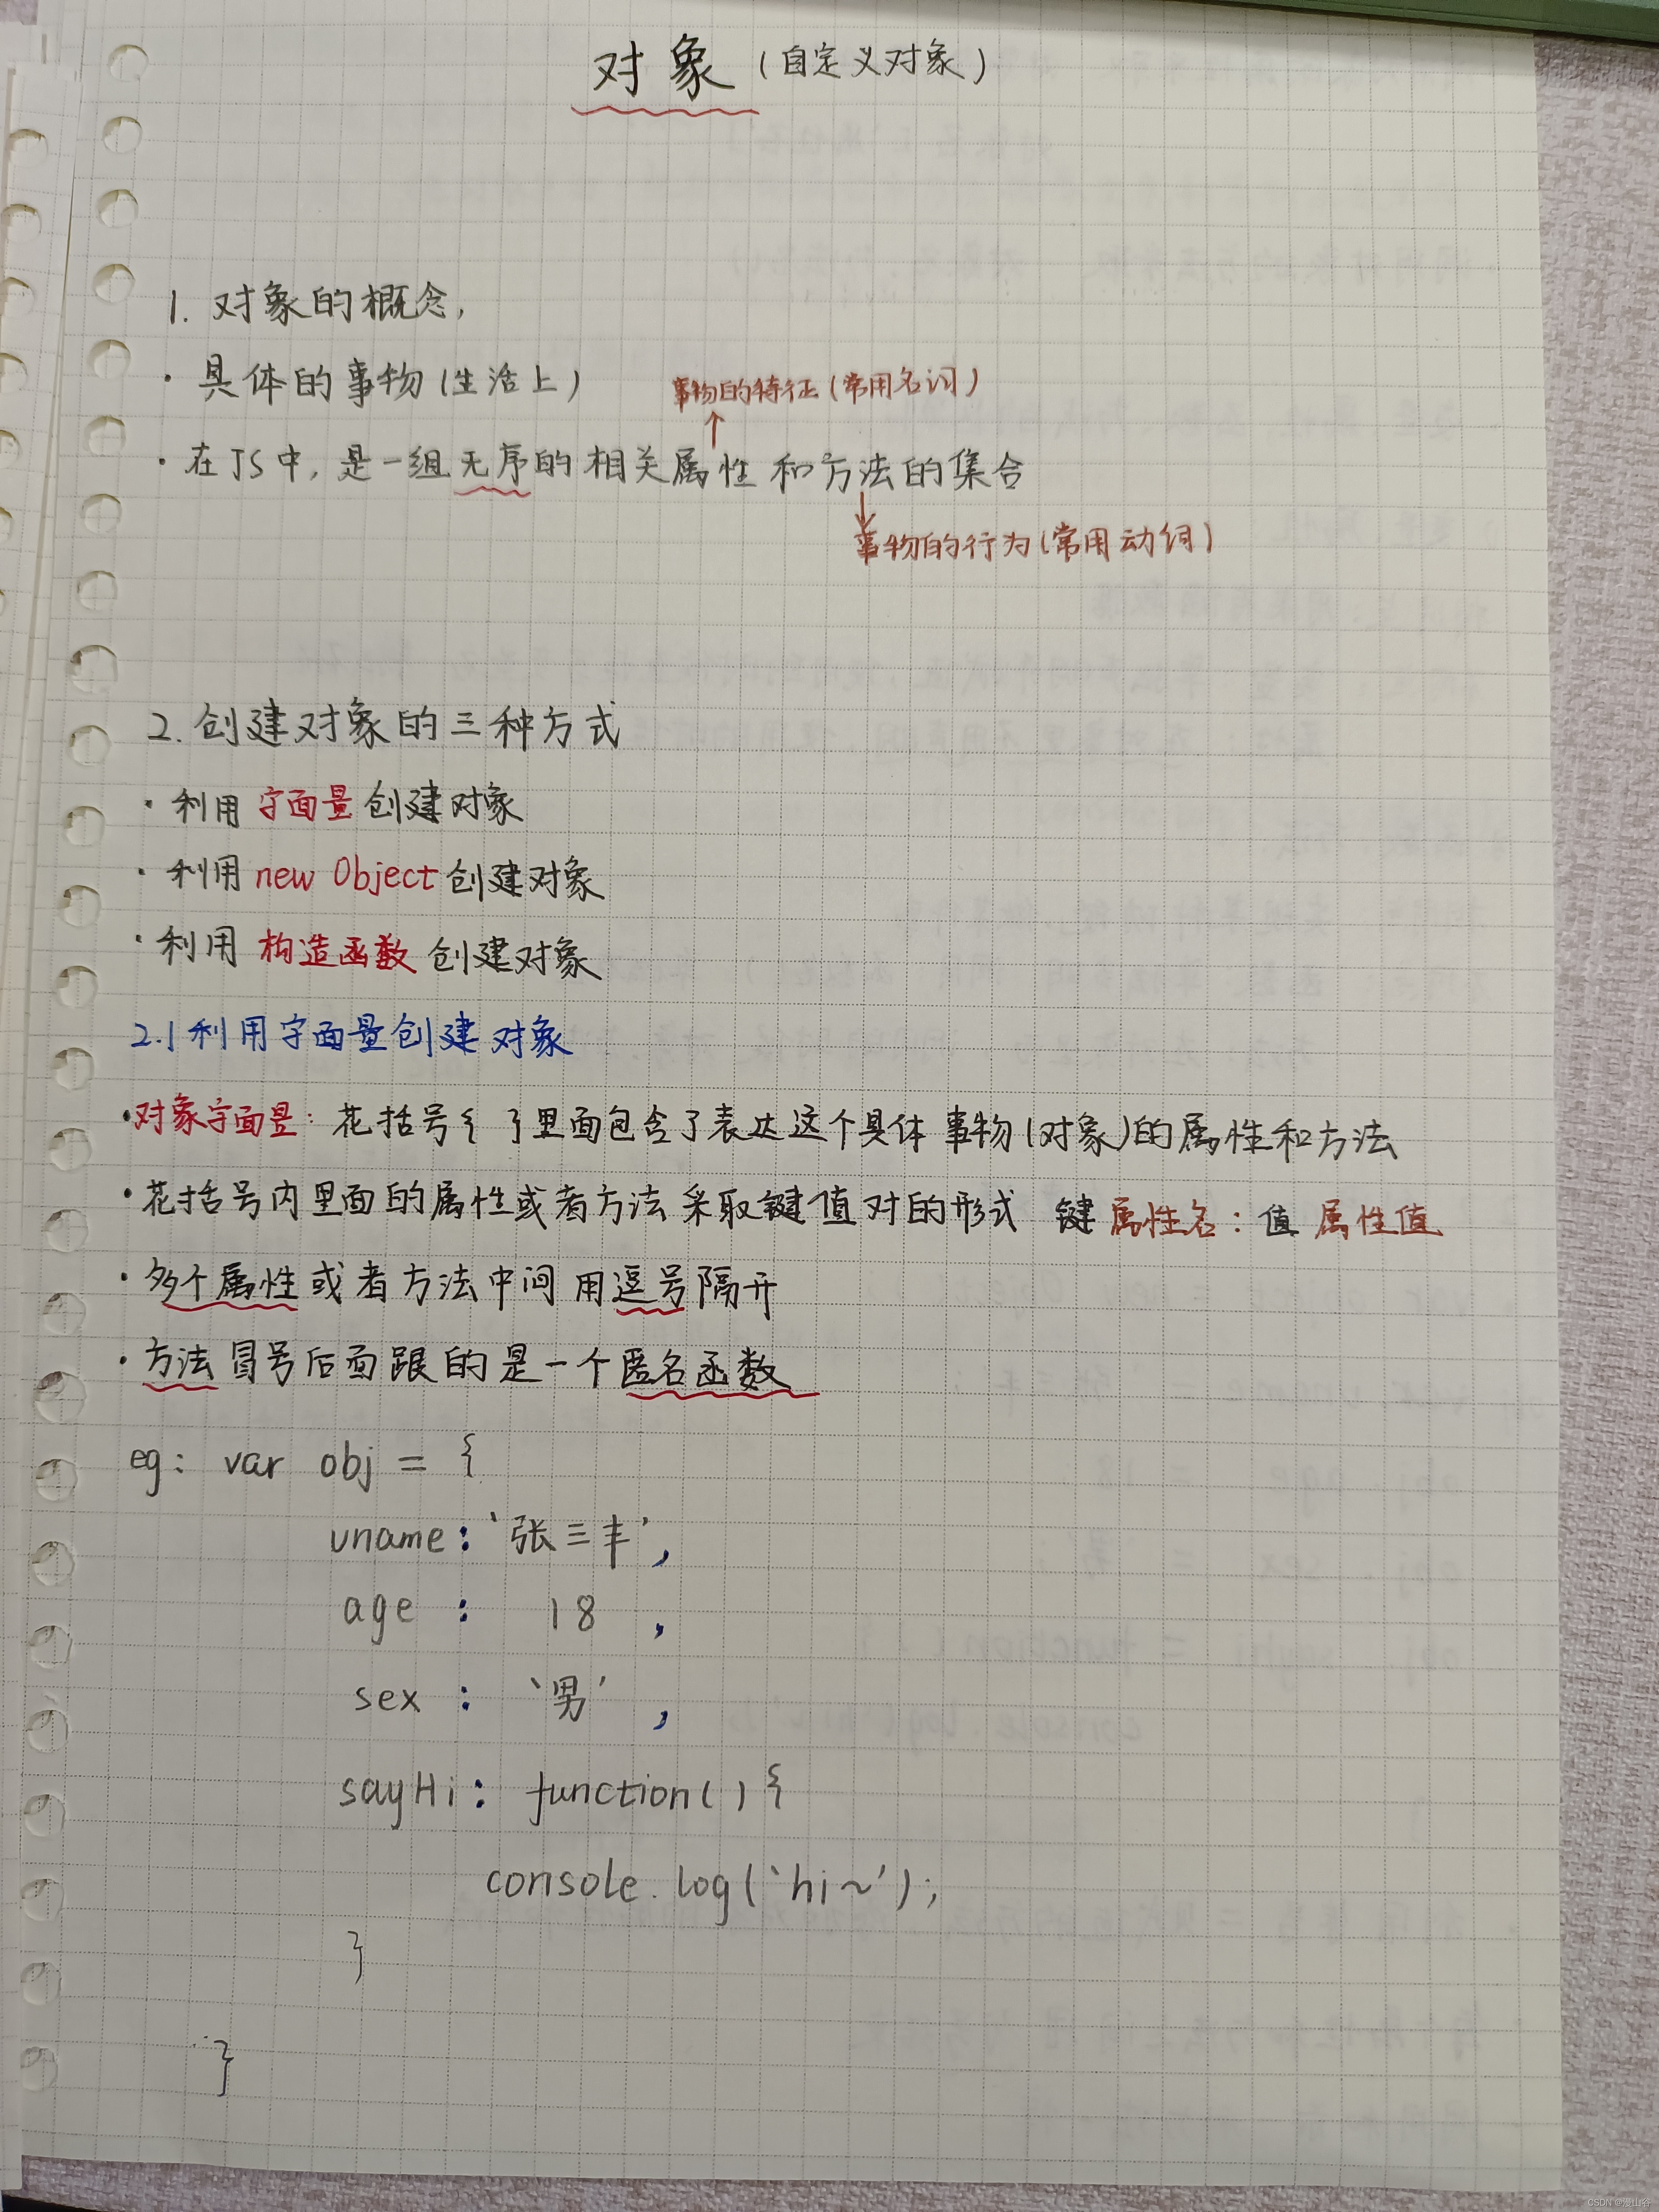 对象（自定义对象）
1. 对象的概念，
· 具体的事物（生活上）
事物的特征（常用名词）
↑
· 在JS中，是一组无序的相关属性和方法的集合
↓
事物的行为（常用动词）
2. 创建对象的三种方式
· 利用字面量创建对象
· 利用 new Object 创建对象
· 利用 构造函数 创建对象
2.1 利用字面量创建对象
· 对象字面量：花括号{ }里面包含了表达这个具体事物（对象）的属性和方法
· 花括号内里面的属性或者方法采取键值对的形式 键 属性名：值 属性值
· 多个属性或者方法中间用逗号隔开
· 方法冒号后面跟的是一个匿名函数
eg: var obj = {
uname: '张三丰',
age : 18 ,
sex : '男' ,
sayHi: function() {
console.log('hi~');
}
}
CSDN @漫山谷